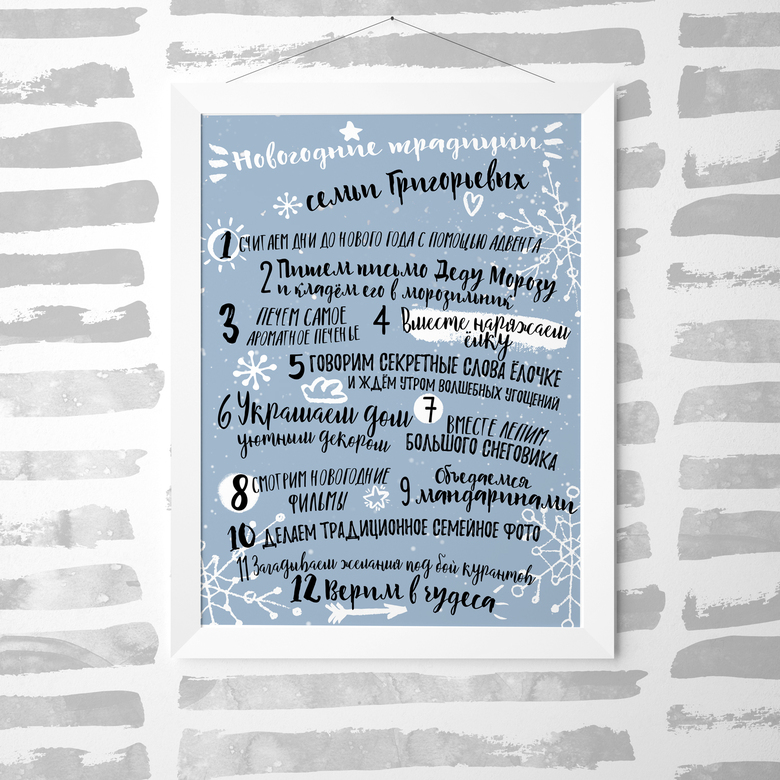 Новогодние традиции
семьи Григорьевых
1 СЧИТАЕМ ДНИ ДО НОВОГО ГОДА С ПОМОЩЬЮ АДВЕНТА
2 Пишем письмо Деду Морозу
и кладём его в морозильник
3 ПЕЧЕМ САМОЕ
АРОМАТНОЕ ПЕЧЕНЬЕ
4 Вместе наряжаем
ёлку
5 ГОВОРИМ СЕКРЕТНЫЕ СЛОВА ЁЛОЧКЕ
И ЖДЁМ УТРОМ ВОЛШЕБНЫХ УГОЩЕНИЙ
6 Украшаем дом
уютным декором
7 ВМЕСТЕ ЛЕПИМ
БОЛЬШОГО СНЕГОВИКА
8 СМОТРИМ НОВОГОДНИЕ
ФИЛЬМЫ
9 Объедаемся
мандаринами
10 ДЕЛАЕМ ТРАДИЦИОННОЕ СЕМЕЙНОЕ ФОТО
11 Загадываем желания под бой курантов
12 Верим в чудеса